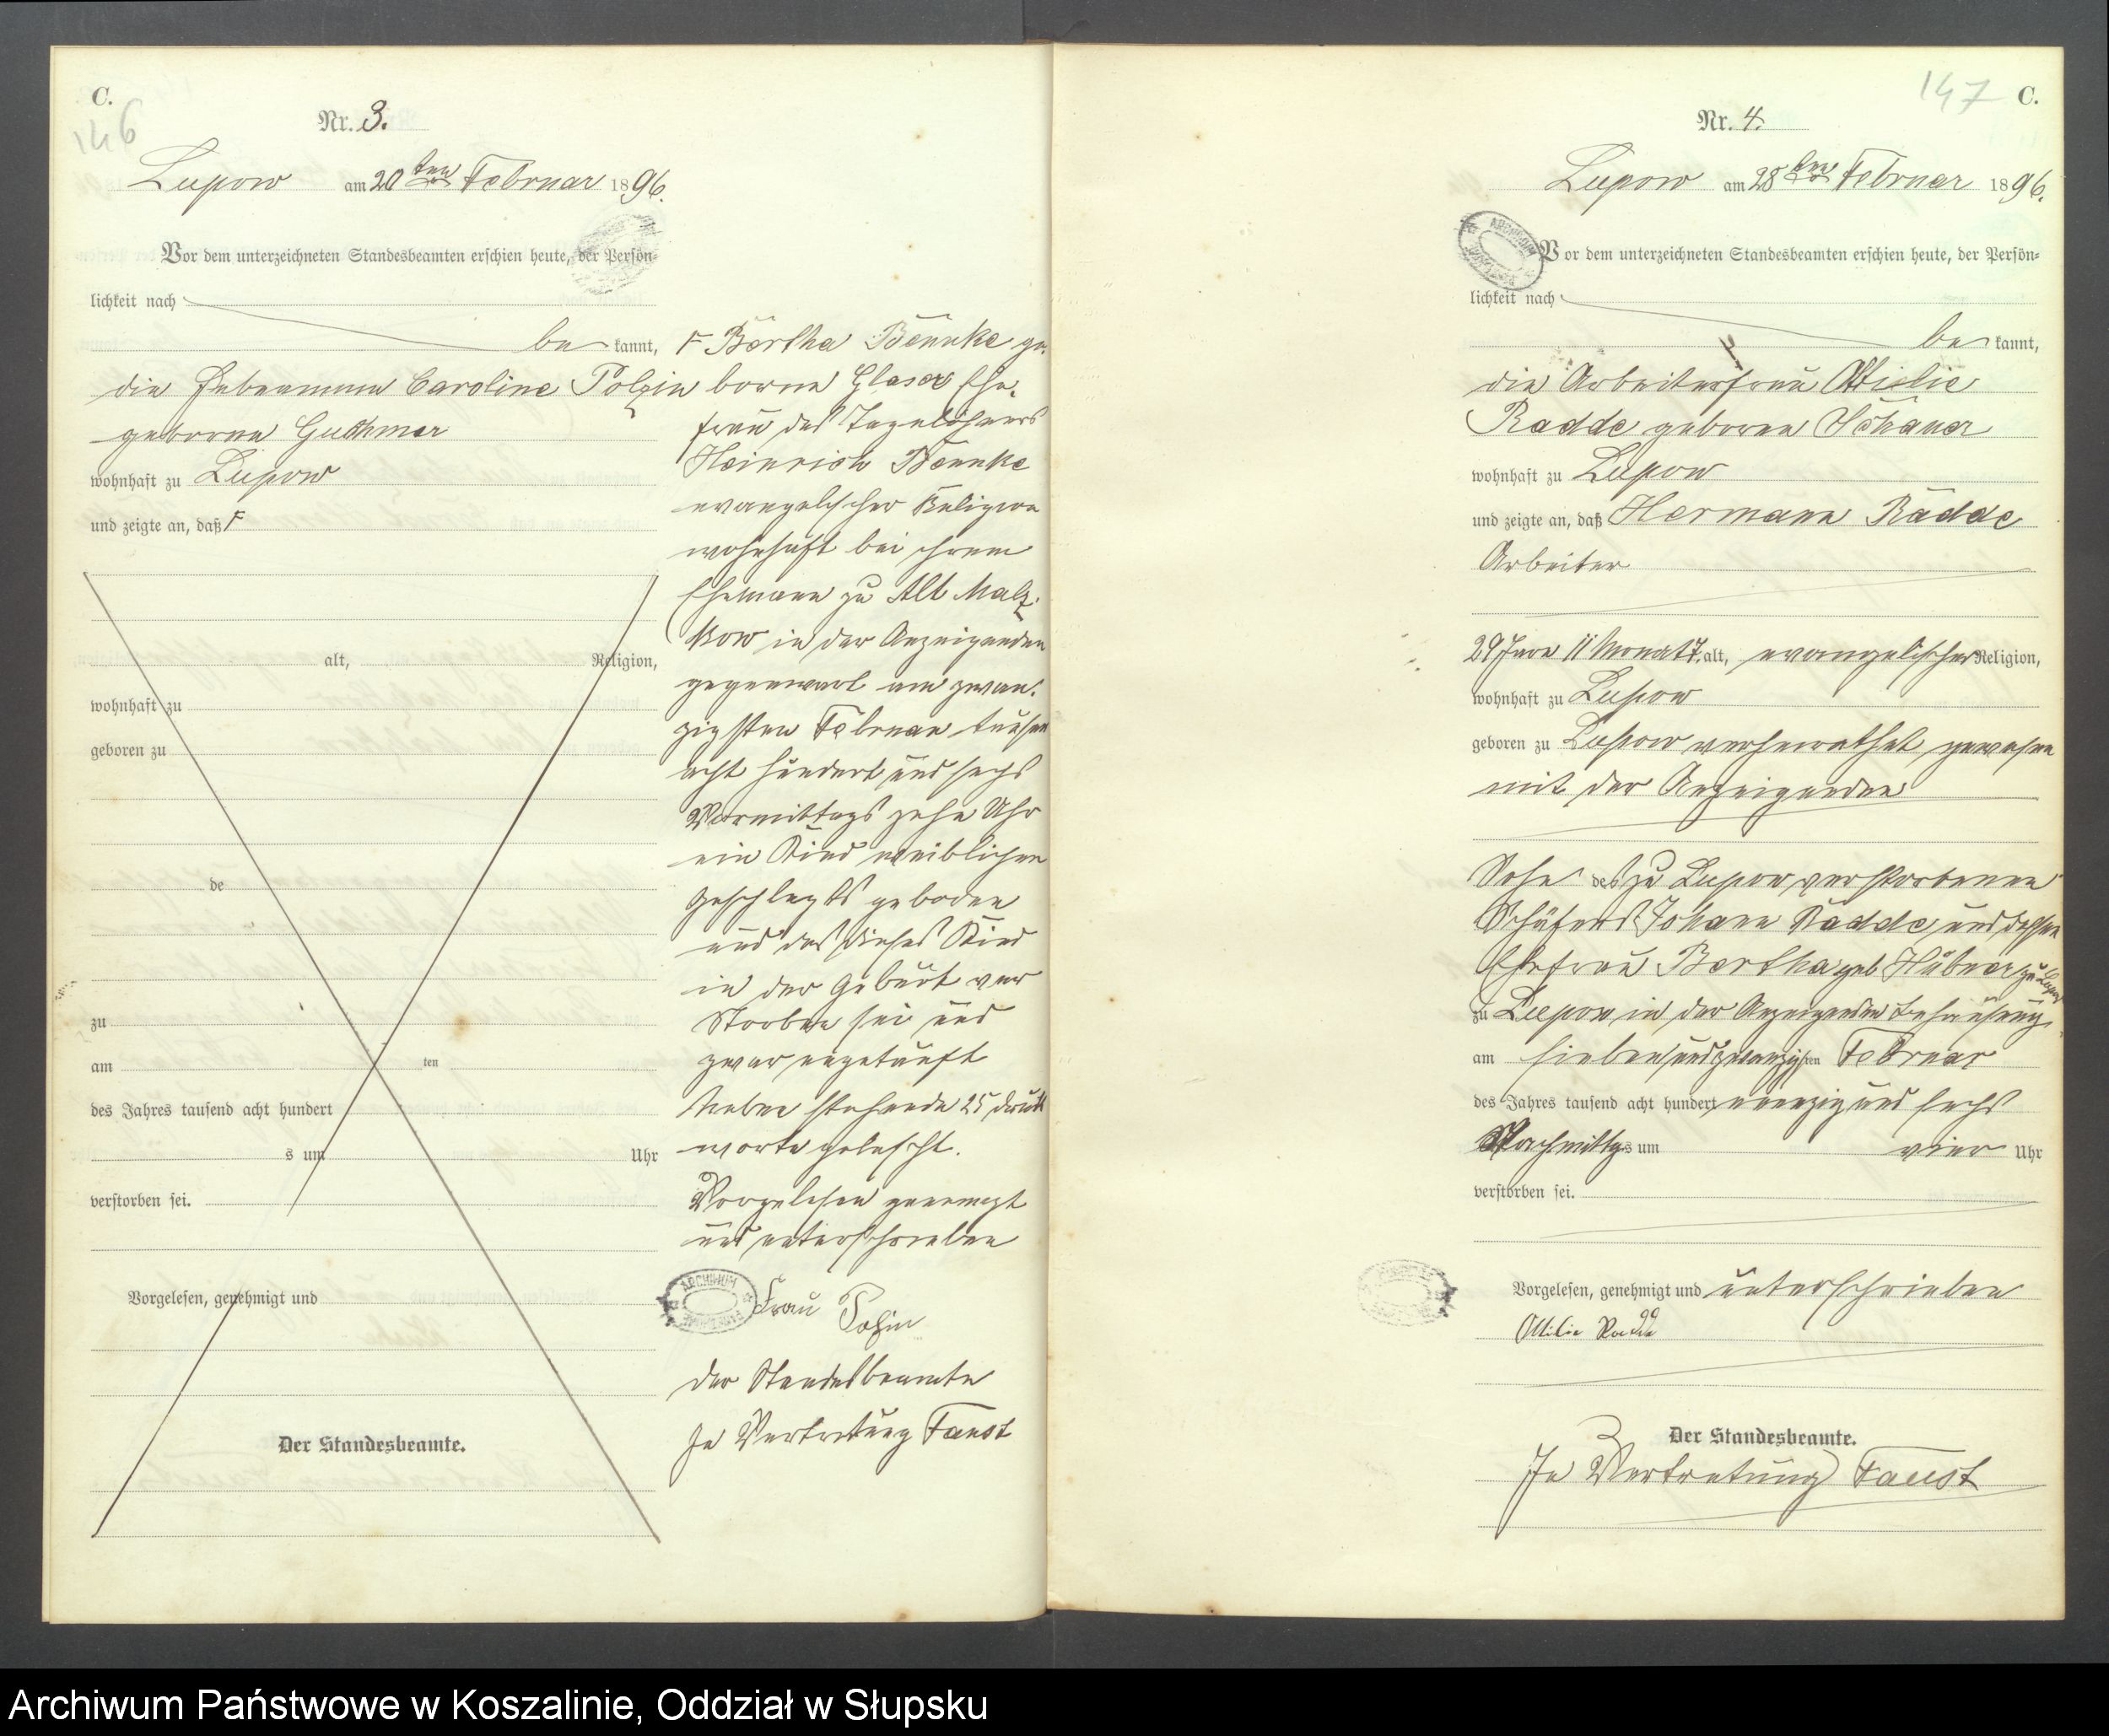 C.
146
Nr. 3.
Lupow am 20ten Februar 1896.
Vor dem unterzeichneten Standesbeamten erschien heute, der Persön-
lichkeit nach
be kannt,
die Hebeamme Caroline Polzin
geborne Guthmer
wohnhaft zu Lupow
und zeigte an, daß F
alt, Religion,
wohnhaft zu
geboren zu
de
zu
am ten
des Jahres tausend acht hundert
s um Uhr
verstorben sei.
Vorgelesen, genehmigt und
Der Standesbeamte.
F Bertha Bennke ge-
borne Glaser Ehe-
frau des Tagelöhners
Heinrich Bennke
evangelischer Religion
wohnhaft bei ihrem
Ehemann zu Alt Malz-
kow in der Anzeigenden
gegenwart am zwan-
zigsten Februar tausen
acht hundert und sechs
Vormittags zehn Uhr
ein Kind weiblichen
Geschlechts geboren
und das dieses Kind
in der Geburt ver
Storben sei und
zwar ungetauft
Neben stehende 25 Druck
worte gelöscht.
Vorgelesen genemigt
und unterschrieben
ARCHIWUM
Frau Polzin
Der Standesbeamte
In Vertretung Faust
147
C.
Nr. 4.
Lupow am 28ten Februar 1896.
ARCHIWUM
Vor dem unterzeichneten Standesbeamten erschien heute, der Persön-
lichkeit nach
be kannt,
die Arbeiterfrau Ottielie
Radde geboren
wohnhaft zu Lupow
und zeigte an, daß Hermann Radde
Arbeiter
29 Jare 11 Monat 7. alt, evangelischer Religion,
wohnhaft zu Lupow
geboren zu Lupow verheirathet gewesen
mit der Anzeigenden
Sohn des zu Lupow verstorbenen
Schäfers Johann Radde und dessen
Ehefrau Bertha geb Hübner zu Lupow
zu Lupow in der Anzeigenden Behausung
am sieben und zwanzigsten Februar
des Jahres tausend acht hundert neunzig und sechs
Nachmittags um vier Uhr
verstorben sei.
Vorgelesen, genehmigt und unterschrieben
Ottilie Radde
Der Standesbeamte.
In Vertretung Faust
Archiwum Państwowe w Koszalinie, Oddział w Słupsku